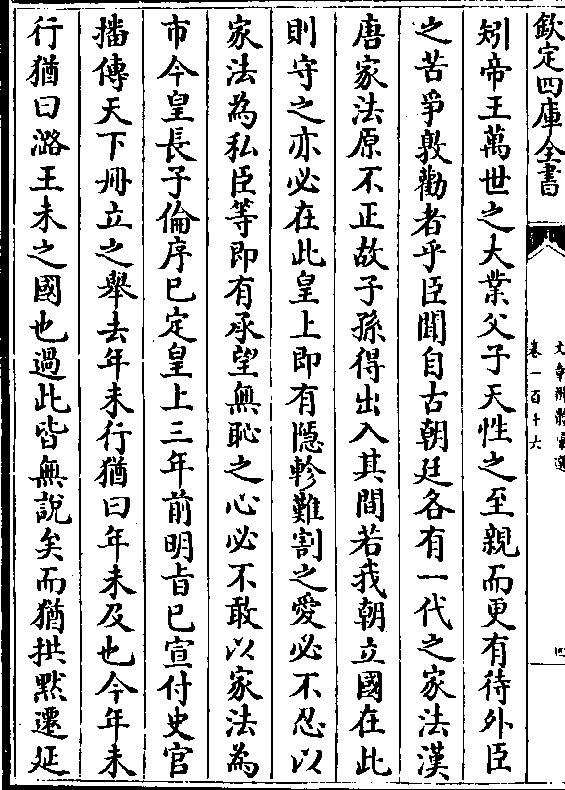 欽定四庫全書
文章辨體彙選
卷一百十六
四
矧帝王萬世之大業父子天性之至親而更有待外臣
之苦爭敦勸者乎臣聞自古朝廷各有一代之家法漢
唐家法原不正故子孫得出入其間若我朝立國在此
則守之亦必在此皇上即有隱軫難割之愛必不忍以
家法為私臣等即有承望無恥之心必不敢以家法為
市今皇長子倫序已定皇上三年前明旨已宣付史官
播傳天下冊立之舉去年未行猶曰年未及也今年未
行猶曰潞王未之國也過此皆無說矣而猶拱默遷延